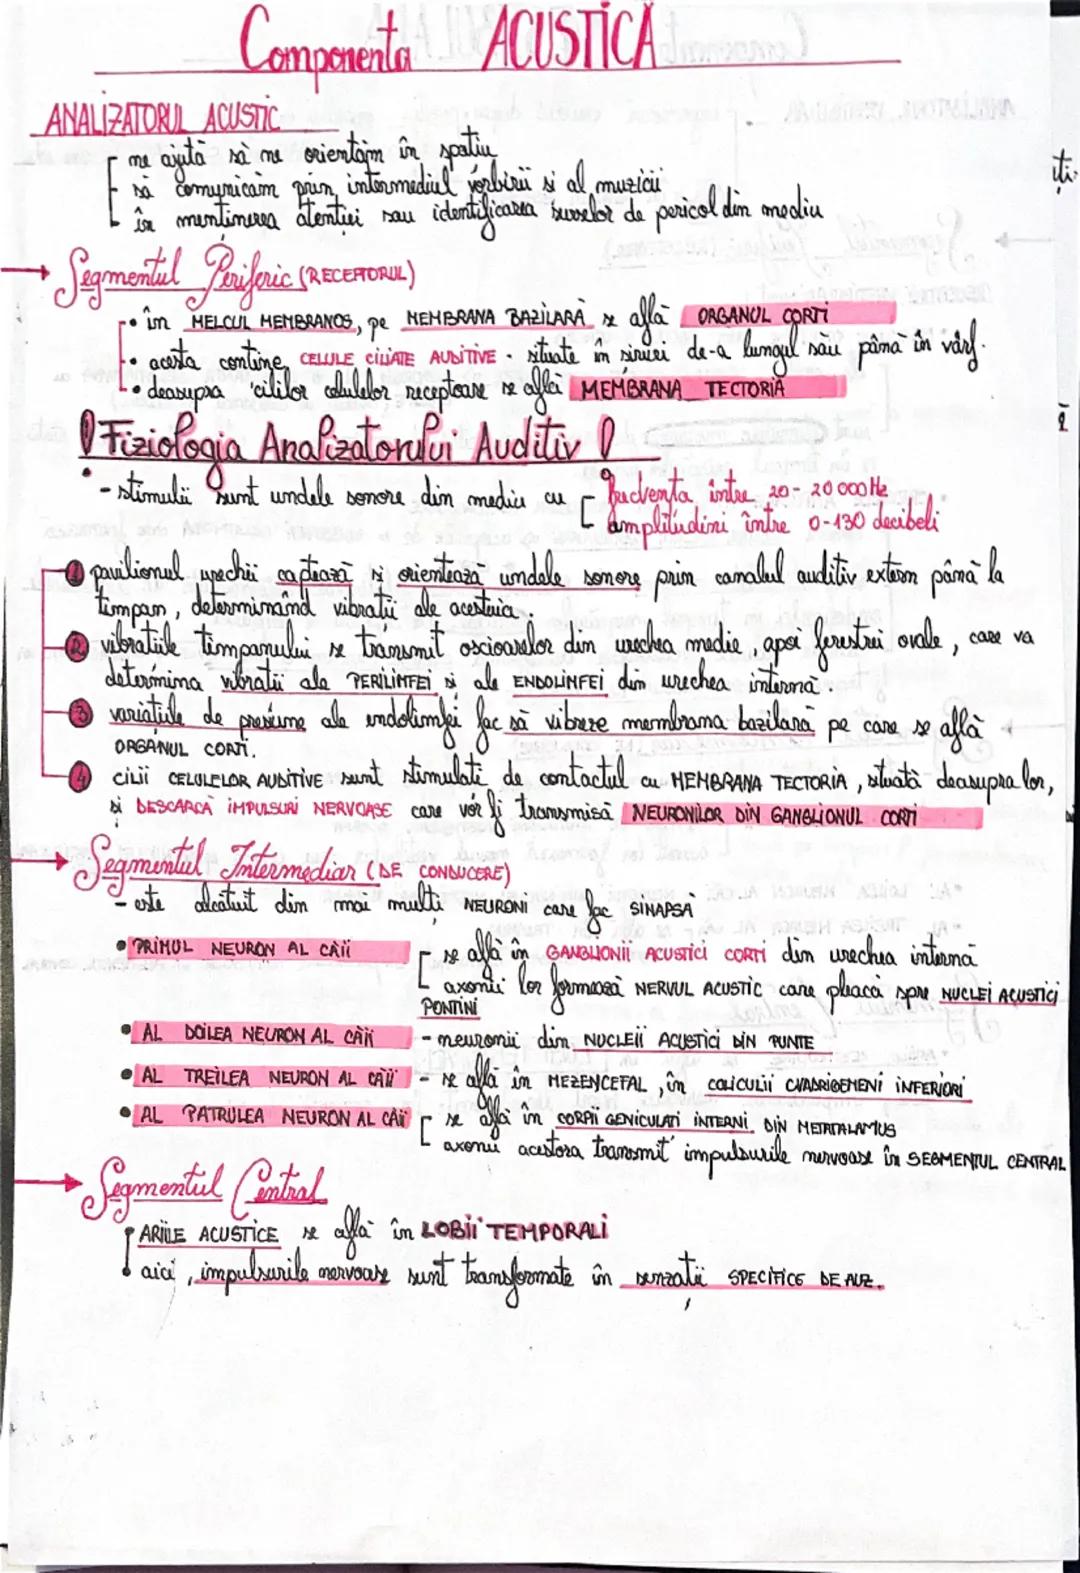 Componenta ACUSTICĂ
ANALIZATORUL ACUSTIC
ne ajută să ne orientăm în spațiu
să comunicăm prin intermediul vorbirii si al muzicii
în mentinerea atentiei sau identificarea surselor de pericol din mediu
→ Segmentul Periferic (RECEPTORUL)
• în MELCUL MEMBRANOS, pe MEMBRANA BAZILARĂ se află ORGANUL CORTI
• acesta contine CELULE CILIATE AUDITIVE - situate în siruri de-a lungul său până în vârf.
• deasupra cililor celulelor receptoare se află MEMBRANA TECTORIA
! Fiziologia Analizatorului Auditiv !
- stimulii sunt undele sonore din mediu cu frecventa între 20-20000Hz
amplitudini între 0-130 decibeli
1 pavilionul urechii captează si orientează undele sonore prin canalul auditiv extern până la
timpan, determinând vibratii ale acestuia.
2 vibratiile timpanului se transmit oscioarelor din urechea medie, apoi ferestrei ovale, care va
determina vibratii ale PERILIMFEI si ale ENDOLIMFEI din urechea internă.
3 variatiile de presiune ale endolimfei fac să vibreze membrana bazilară pe care se află
ORGANUL CORTI.
4 CILII CELULELOR AUDITIVE sunt stimulati de contactul cu MEMBRANA TECTORIA, situată deasupra lor,
si DESCARCĂ IMPULSURI NERVOASE care vor fi transmisă NEURONILOR DIN GANGLIONUL CORTI
→ Segmentul Intermediar (DE CONDUCERE)
- este alcătuit din mai multi NEURONI care fac SINAPSĂ
• PRIMUL NEURON AL CĂII
se află în GANGLIONII ACUSTICI CORTI din urechea internă
axonii lor formează NERVUL ACUSTIC care pleacă spre NUCLEI ACUSTICI
PONTINI
• AL DOILEA NEURON AL CĂII - neuronii din NUCLEII ACUSTICI DIN PUNTE
• AL TREILEA NEURON AL CĂII - se află în MEZENCEFAL, în COLICULII CVADRIGEMENI INFERIORI
• AL PATRULEA NEURON AL CĂII se află în CORPII GENICULATI INTERNI DIN METATALAMUS
axonii acestora transmit impulsurile nervoase în SEGMENTUL CENTRAL
→ Segmentul Central
ARIILE ACUSTICE se află în LOBII TEMPORALI
• aici, impulsurile nervoase sunt transformate în senzații SPECIFICE DE AUZ.